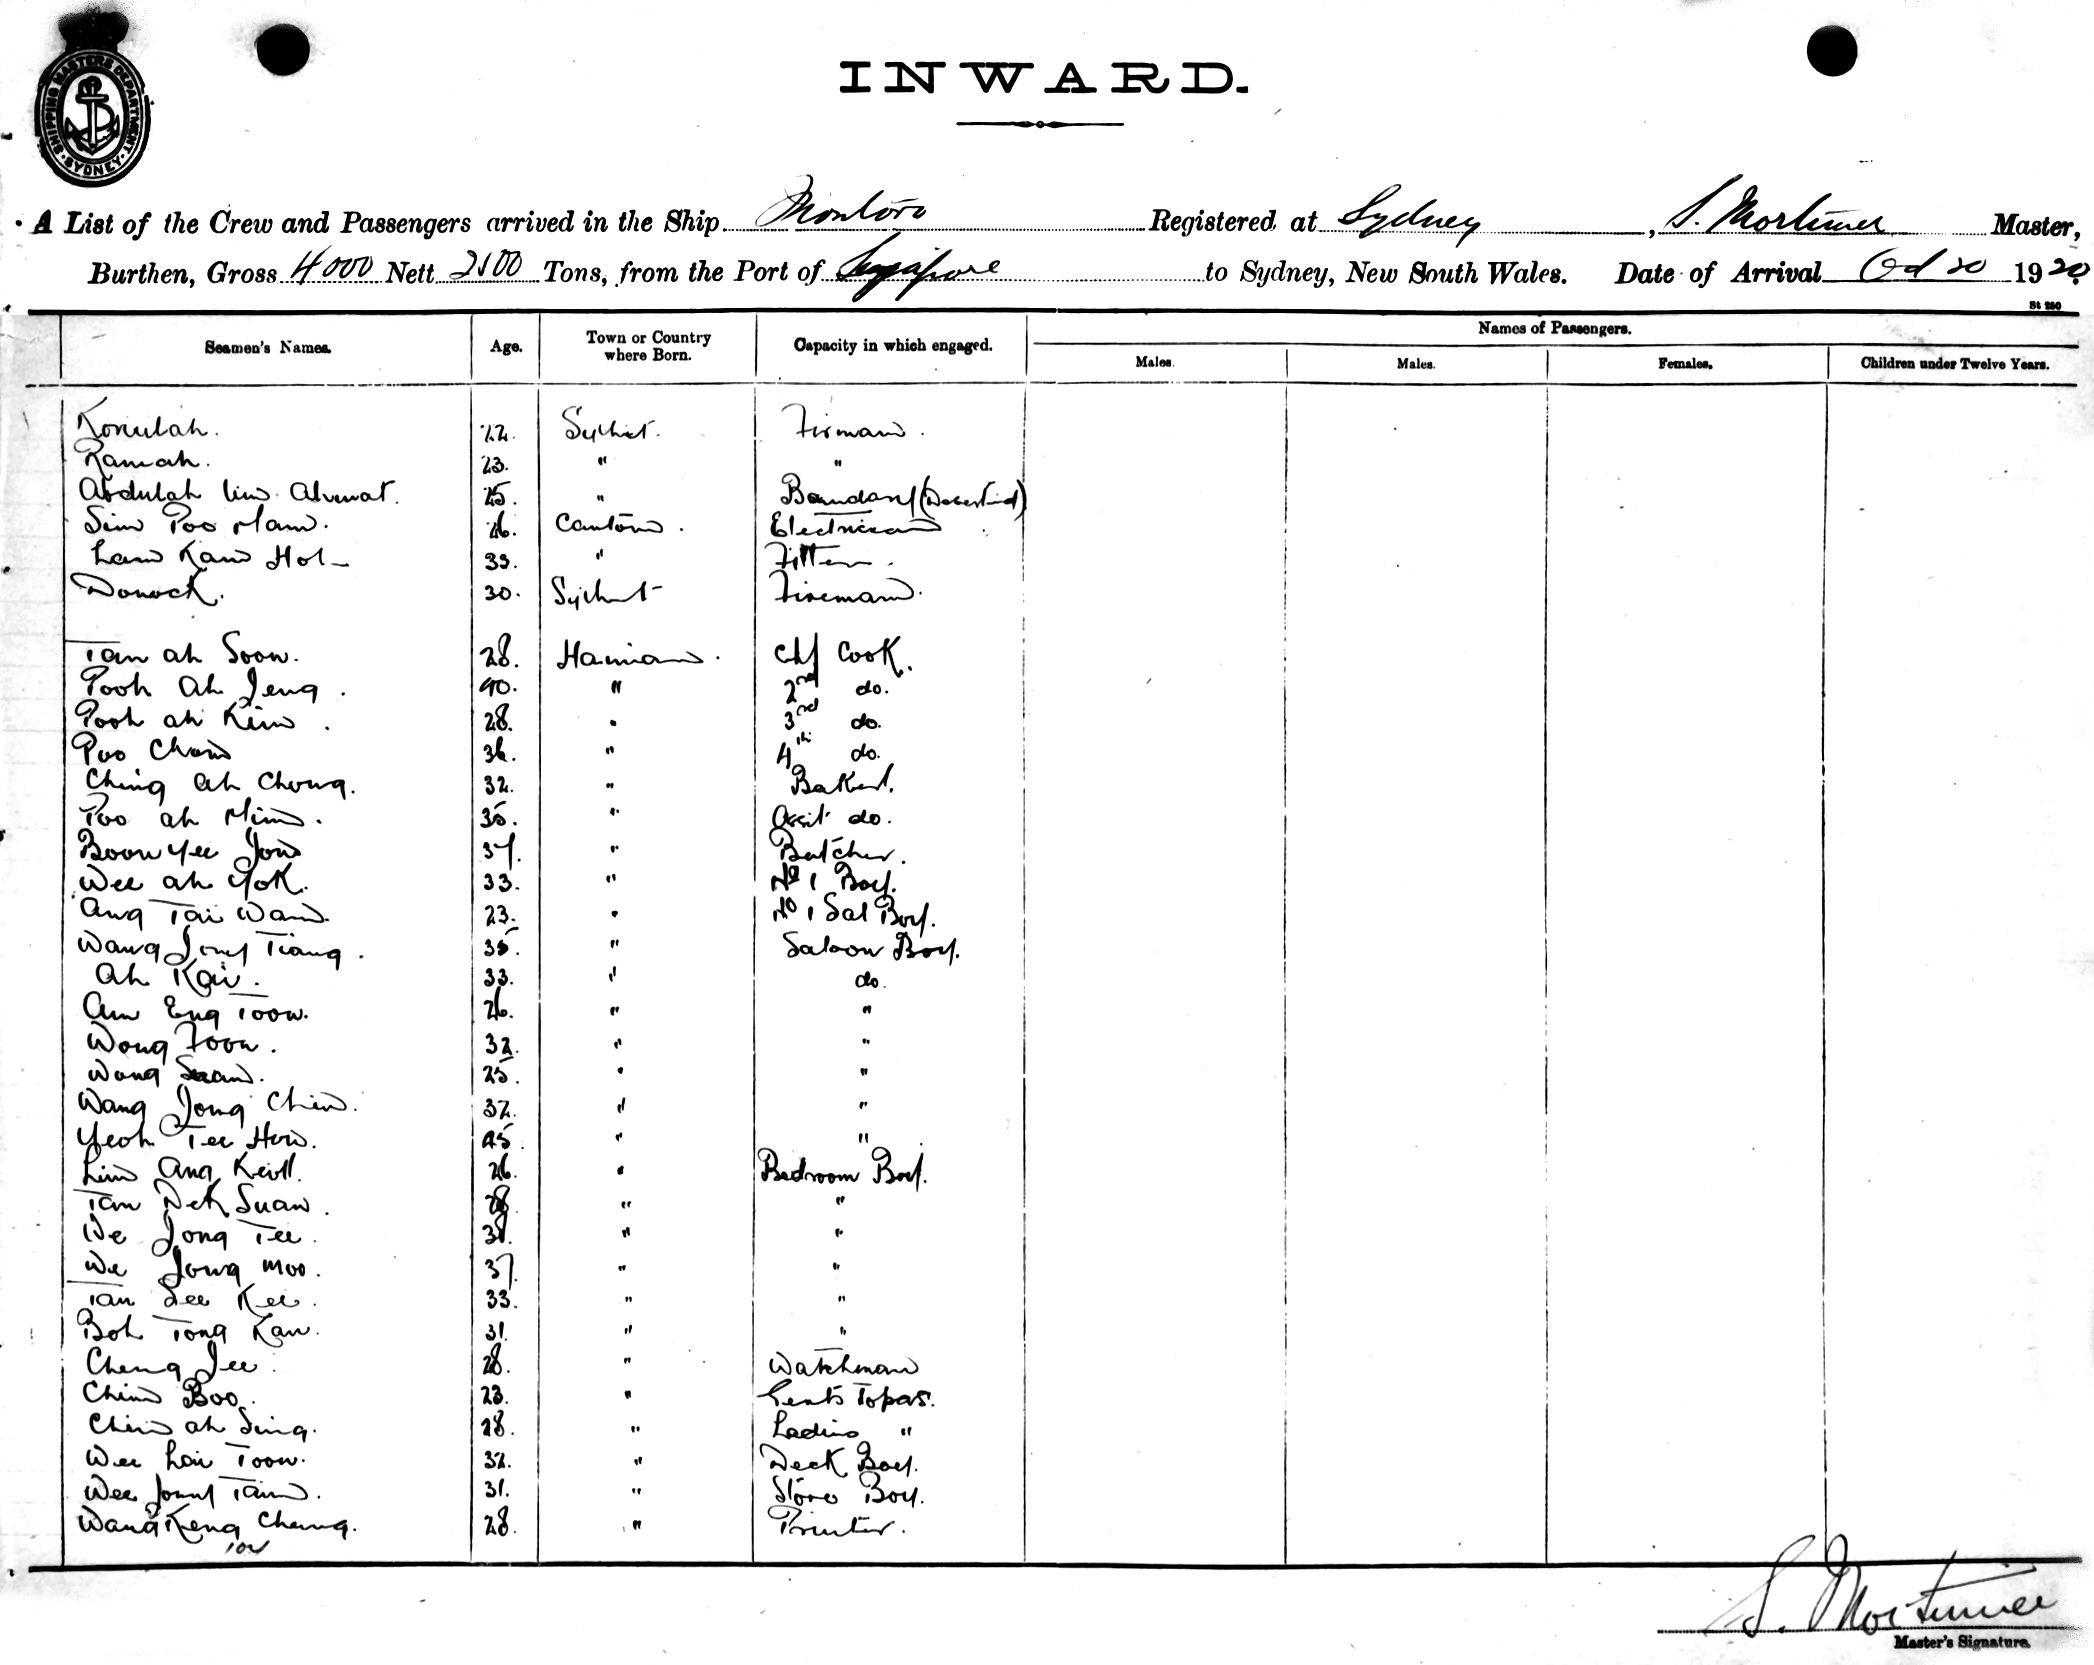 SHIPPING MASTERS DEPARTMENT. SYDNEY
INWARD.
A List of the Crew and Passengers arrived in the Ship Montoro Registered at Sydney, S. Mortimer Master,
Burthen, Gross 4000 Nett 2500 Tons, from the Port of Singapore to Sydney, New South Wales. Date of Arrival Oct 20 1920.
St 250
Seamen's Names. Age. Town or Country where Born. Capacity in which engaged. Names of Passengers.
Males. Males. Females. Children under Twelve Years.
Konulah. 22. Sylhet. Fireman.
Ramah. 23. " "
Abdulah bin 25. " (Deserted)
Sim Poo Nam. 26. Canton. Electrician
Lam Kam Hol- 33. " Fitter.
Donock. 30. Sylhet Fireman.
Tan ah Soon. 28. Hainan. Chf Cook.
Pooh Ah Jeng. 40. " 2nd do.
Pooh ah Kim. 28. " 3rd do.
Poo Cham 36. " 4th do.
Ching ah Chong. 32. " Baker.
Poo ah Nim. 35. " Asst do.
Boon yee Jon 37. " Butcher.
Wee ah Yok. 33. " No 1 Boy.
Ang Tai Wan. 23. " No 1 Sal Boy.
Wang Tiang. 35. " Saloon Boy.
Ah Kai. 33. " do.
Aim Eng Toon. 26. " "
Wong Foon. 32. " "
Wong Suan. 25. " "
Wang Jong Chin. 32. " "
Yeoh Tee How. 45. " "
Lim Ang 26. " Bedroom Boy.
Tan Dek Suan. 28 " "
We Jong Tee. 38. " "
We Jong moo. 37. " "
Tan See Kee. 33. " "
Boh Tong Kan. 31. " "
Cheng Jee. 28. " Watchman
Chin Boo. 23. " Gents Topas.
Chin ah Sing. 28. " Ladies "
Wee Lai Toon. 32. " Deck Boy.
Wee Tain. 31. " Store Boy.
Wang Keng Cheng. 28. " Printer.
S. Mortimer
Master's Signature.